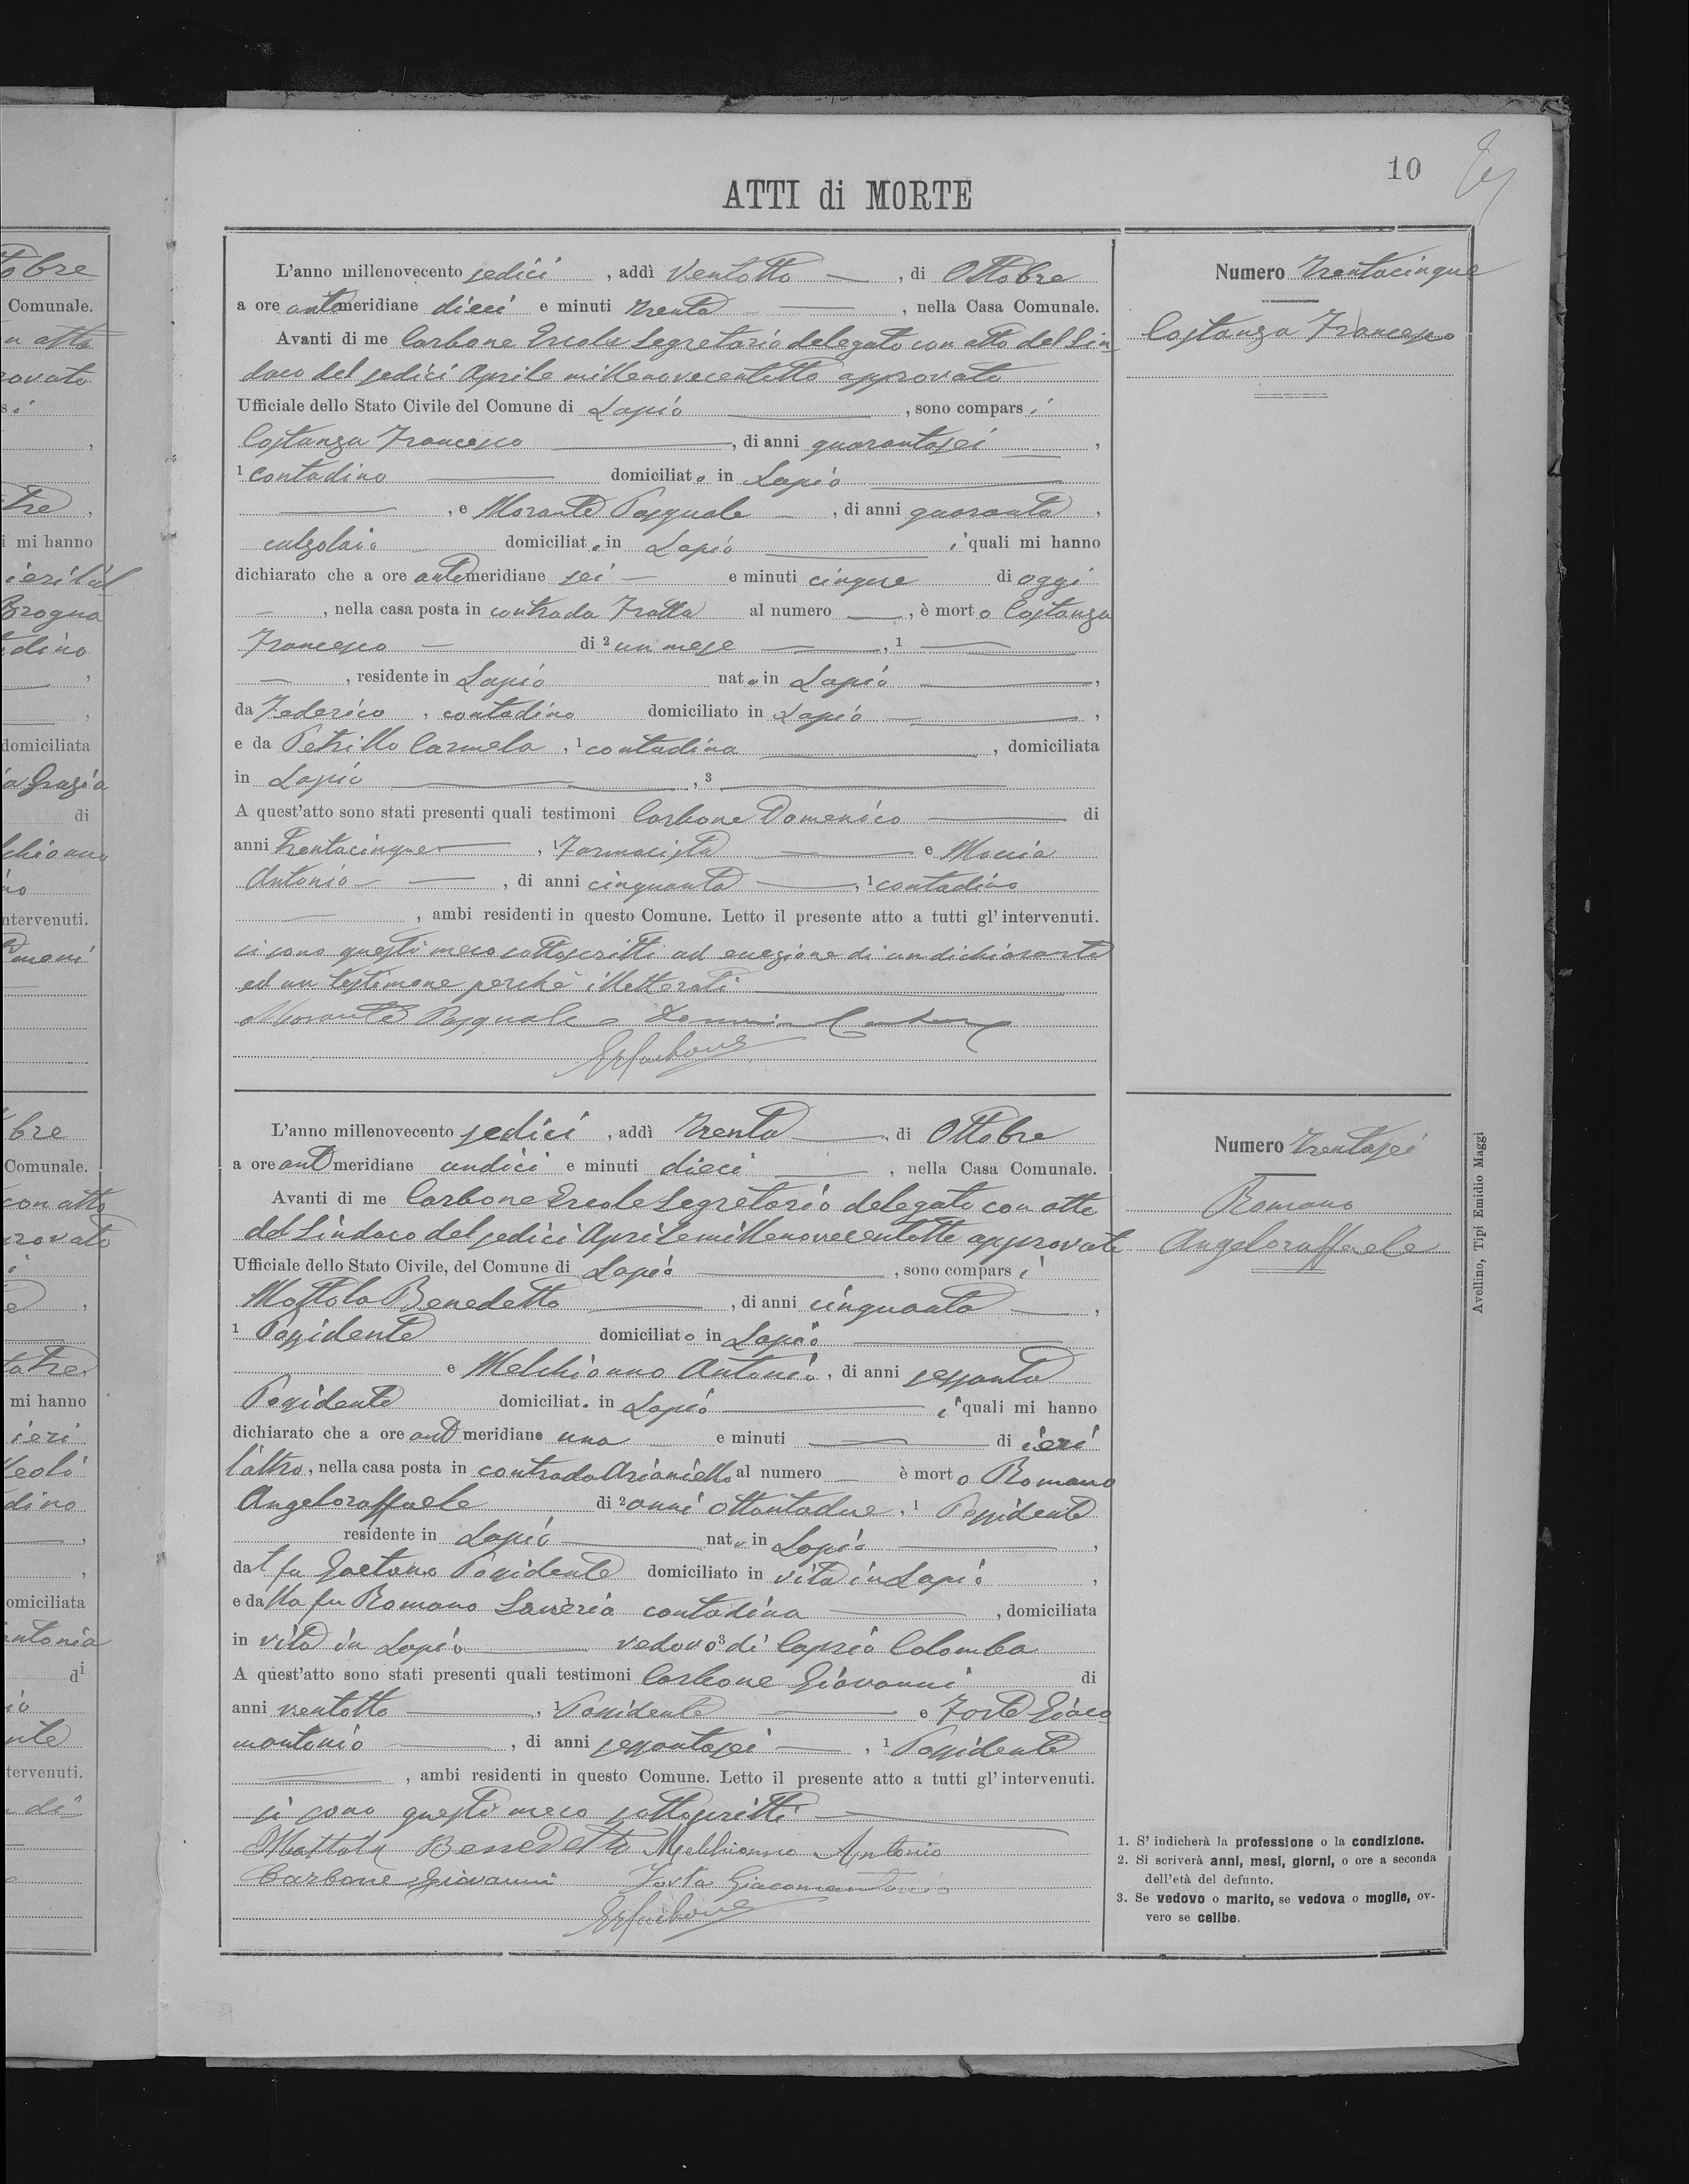 10
ATTI di MORTE
Numero Trentacinque
Costanza Francesco
L'anno millenovecento sedici, addì Ventotto, di Ottobre
a ore antemeridiane dieci e minuti trenta, nella Casa Comunale.
Avanti di me Carbone Ercole Segretario delegato con atto del Sin
daco del sedici Aprile millenovecentotto approvato
Ufficiale dello Stato Civile del Comune di Lapio, sono comparsi
Costanza Francesco, di anni quarantasei,
1 contadino domiciliato in Lapio
, e Morante Pasquale, di anni quaranta,
calzolaio domiciliato in Lapio i quali mi hanno
dichiarato che a ore antemeridiane sei e minuti cinque di oggi
, nella casa posta in contrada Fratta al numero, è morto Costanza
Francesco di 2 un mese, 1
, residente in Lapio nato in Lapio,
da Federico, contadino domiciliato in Lapio,
e da Petrillo Carmela, 1 contadina, domiciliata
in Lapio, 3
A quest'atto sono stati presenti quali testimoni Carbone Domenico di
anni trentacinque, 1 Farmacista e Maccia
Antonio, di anni cinquanta, 1 contadino
, ambi residenti in questo Comune. Letto il presente atto a tutti gl'intervenuti.
si sono questi meco sottoscritti ad eccezione di un dichiarante
ed un testimone perchè illetterati
Morante Pasquale
Numero Trentasei
Romano
Angeloraffaele
L'anno millenovecento sedici, addì Trenta, di Ottobre
a ore antimeridiane undici e minuti dieci, nella Casa Comunale.
Avanti di me Carbone Ercole Segretario delegato con atto
del Sindaco del sedici Aprile millenovecentotto approvato
Ufficiale dello Stato Civile, del Comune di Lapio, sono comparsi
Mottola Benedetto, di anni cinquanta,
1 Possidente domiciliato in Lapio
e Melchionno Antonio, di anni sessanta
Possidente domiciliato in Lapio i quali mi hanno
dichiarato che a ore antmeridiane una e minuti di ieri
l'altro, nella casa posta in contrada Arianiello al numero è morto Romano
Angeloraffaele di 2 anni ottantadue, 1 Possidente
residente in Lapio nato in Lapio,
dal fu Gaetano Possidente domiciliato in vita in Lapio,
e dalla fu Romano Saveria contadina, domiciliata
in vita in Lapio vedovo 3 di Caprio Colomba
A quest'atto sono stati presenti quali testimoni Carbone Giovanni di
anni ventotto, 1 Possidente e Forte Giaco
mantonio, di anni sessantasei, 1 Possidente
, ambi residenti in questo Comune. Letto il presente atto a tutti gl'intervenuti.
si sono questi meco sottoscritti
Mottola Benedetto Melchionno Antonio
Carbone Giovanni Forte Giacomantonio
1. S'indicherà la professione o la condizione.
2. Si scriverà anni, mesi, giorni, o ore a seconda
dell'età del defunto.
3. Se vedovo o marito, se vedova o moglie, ov-
vero se celibe.
Avellino, Tipi Emidio Maggi